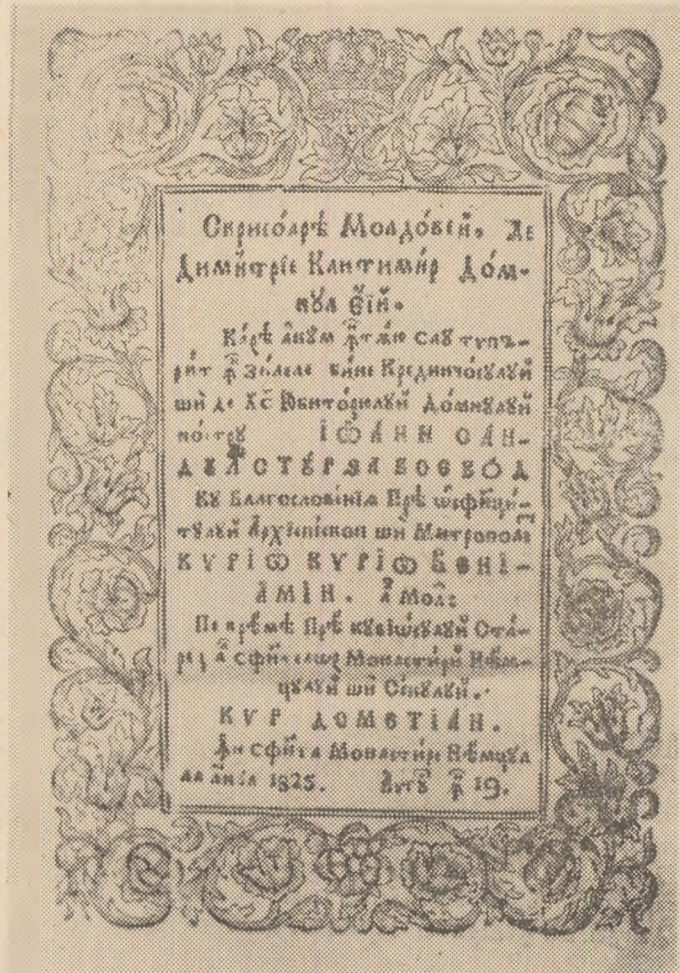 Скрисо́арѣ Молдо́вей, де
Дими́трїе Кантими́р До́м-
нꙋл е҆й.
Ка́рѣ а҆кꙋм ꙟ҆тѫю са꙼ꙋ типъ-
ри́т ꙟ҆ Зи́леле Крединчо́сꙋлꙋй
ши де Хс҃ Ю҆бито́рюлꙋй До́мнꙋлꙋй
но́стрꙋ І҆Ѡ҆А́НН САН-
ДꙊЛ СТꙊ́РЗА ВОЕВО́Д
Кꙋ Благослове́нїѧ Прѣ ѡ҆сфинци́-
тꙋлꙋй А҆рхїепі́скоп ши Митропо́ли
КѴРІѠ КѴРІѠ ВЕНІ-
АМІ́Н. а҆ Мол:
Пе врѣ́мѣ Прѣ кꙋвїѡ́сꙋлꙋй Ста́-
рец а҆ сфи́нтелѡр Монасти́рй Нѣ́м-
цꙋлꙋй ши Сѣ́кꙋлꙋй.
КѴР ДОМЕТІА́Н.
Ꙟ҆ сфѫ́нта Монасти́ре Нѣ́мцꙋл
ла а́нїй 1825. А҆́ꙋгꙋ ꙟ҆ 19.